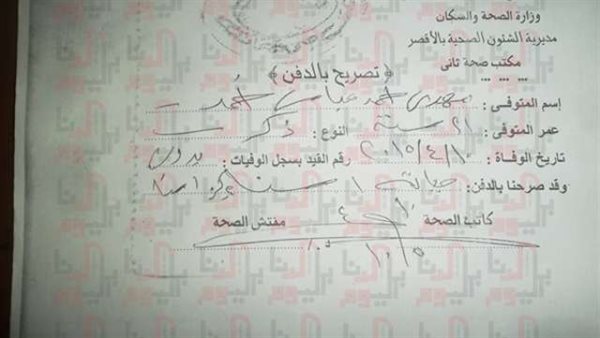 وزارة الصحة والسكان
مديرية الشئون الصحية بالأقصر
مكتب صحة ثانى
﴿ تصريح بالدفن ﴾
إسم المتوفى : مهدى احمد عباس احمد
عمر المتوفى : ٢١ سنة النوع : ذكر
تاريخ الوفاة : ٢٠١٥/٤/١٠ رقم القيد بسجل الوفيات : بدون
وقد صرحنا بالدفن :
كاتب الصحة مفتش الصحة